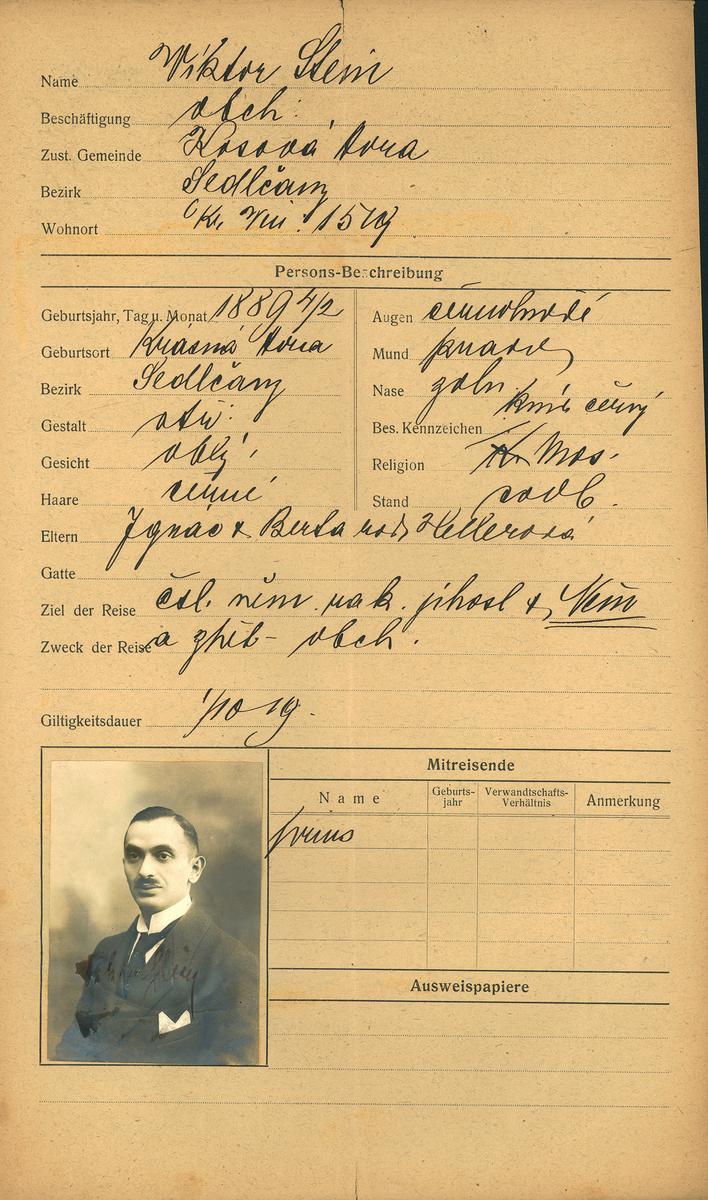 Name Viktor Stein
Beschäftigung obch.
Zust. Gemeinde Kosová Hora
Bezirk Sedlčany
Wohnort Kr. Vin. 1519
Persons-Beschreibung
Geburtsjahr, Tag u. Monat 1889 4/2
Geburtsort Krásná Hora
Bezirk Sedlčany
Gestalt
Gesicht oblý
Haare černé
Augen černohnědé
Mund pravid
Nase
knír černý
Bes. Kennzeichen
Religion Mos.
Stand svob.
Eltern Ignác & Berta roz. Hellerová
Gatte
Ziel der Reise čsl. něm. rak. jihosl &
Zweck der Reise a zpět - obch.
Giltigkeitsdauer
Mitreisende
Name Geburts-jahr Verwandtschafts-Verhältnis Anmerkung
Ausweispapiere